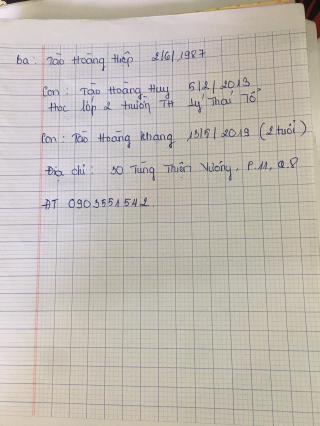 Ba: Tào Hoàng Hiệp 2/6/1987
Con: Tào Hoàng Huy 5/2/2013
Học lớp 2 trườn TH Lý Thái Tổ
Con: Tào Hoàng Khang 15/5/2019 (2 tuổi)
Địa chỉ: 50 Tùng Thiên Vương, P.11, Q.8
ĐT 0903551542